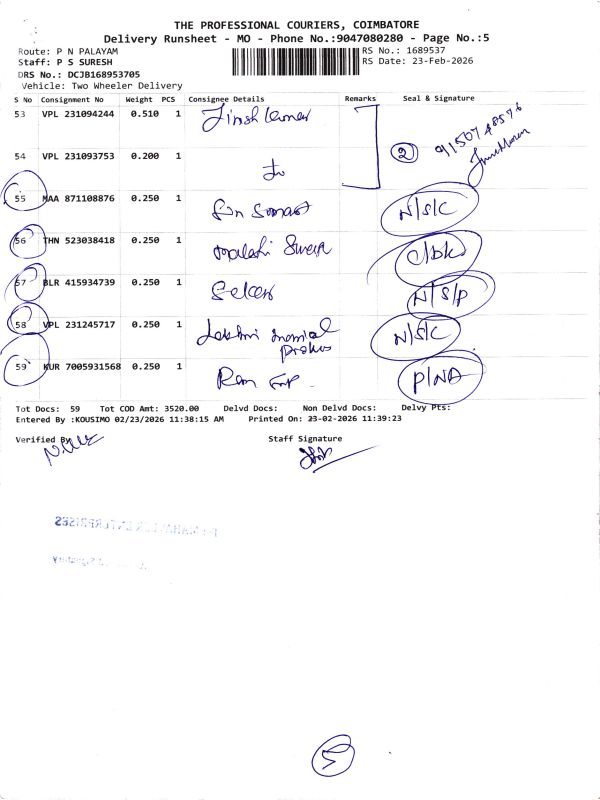 THE PROFESSIONAL COURIERS, COIMBATORE
Delivery Runsheet - MO - Phone No.:9047080280 - Page No.:5
Route: P N PALAYAM
RS No.: 1689537
Staff: P S SURESH
RS Date: 23-Feb-2026
DRS No.: DCJB168953705
Vehicle: Two Wheeler Delivery
S No Consignment No Weight PCS Consignee Details Remarks Seal & Signature
53 VPL 231094244 0.510 1
54 VPL 231093753 0.200 1 2 9150748576
55 MAA 871108876 0.250 1 N/S/C
56 THN 523038418 0.250 1
57 BLR 415934739 0.250 1 N/S/P
58 VPL 231245717 0.250 1 Lakshmi N/S/C
59 KUR 7005931568 0.250 1 Ram P/NA
Tot Docs: 59 Tot COD Amt: 3520.00 Delvd Docs: Non Delvd Docs: Delvy Pts:
Entered By :KOUSIMO 02/23/2026 11:38:15 AM Printed On: 23-02-2026 11:39:23
Verified By
Staff Signature
5